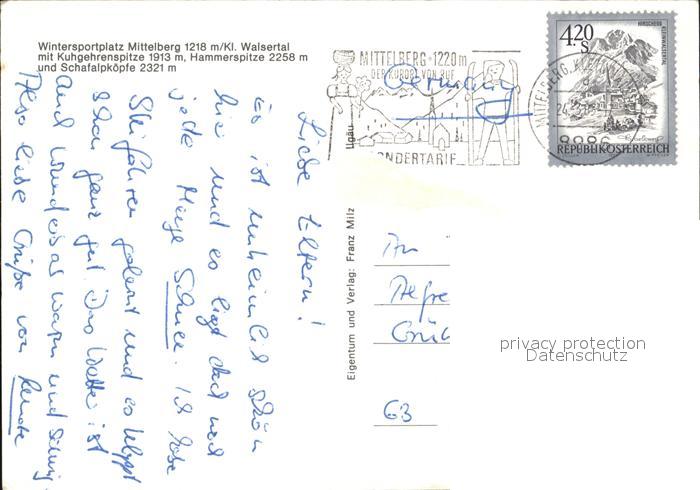 Wintersportplatz Mittelberg 1218 m/Kl. Walsertal
mit Kuhgehrenspitze 1913 m, Hammerspitze 2258 m
und Schafalpköpfe 2321 m
MITTELBERG · 1220 m
DER KURORT VON RUF
NDERTARIF
Germany
4.20
S
HIRSCHEGG
KLEINWALSERTAL
REPUBLIK ÖSTERREICH
MITTELBERG, KLEINWALSERTAL
Liebe Eltern!
Es ist unheimlich schön
hier und es liegt auch noch
jede Menge Schnee. Ich habe
Skifahren gelernt und es klappt
schon ganz gut. Das Wetter ist
auch wunderbar warm und sonnig
Also liebe Grüße von Renate
Eigentum und Verlag: Franz Milz
lgäu
An
Grü
63
privacy protection
Datenschutz